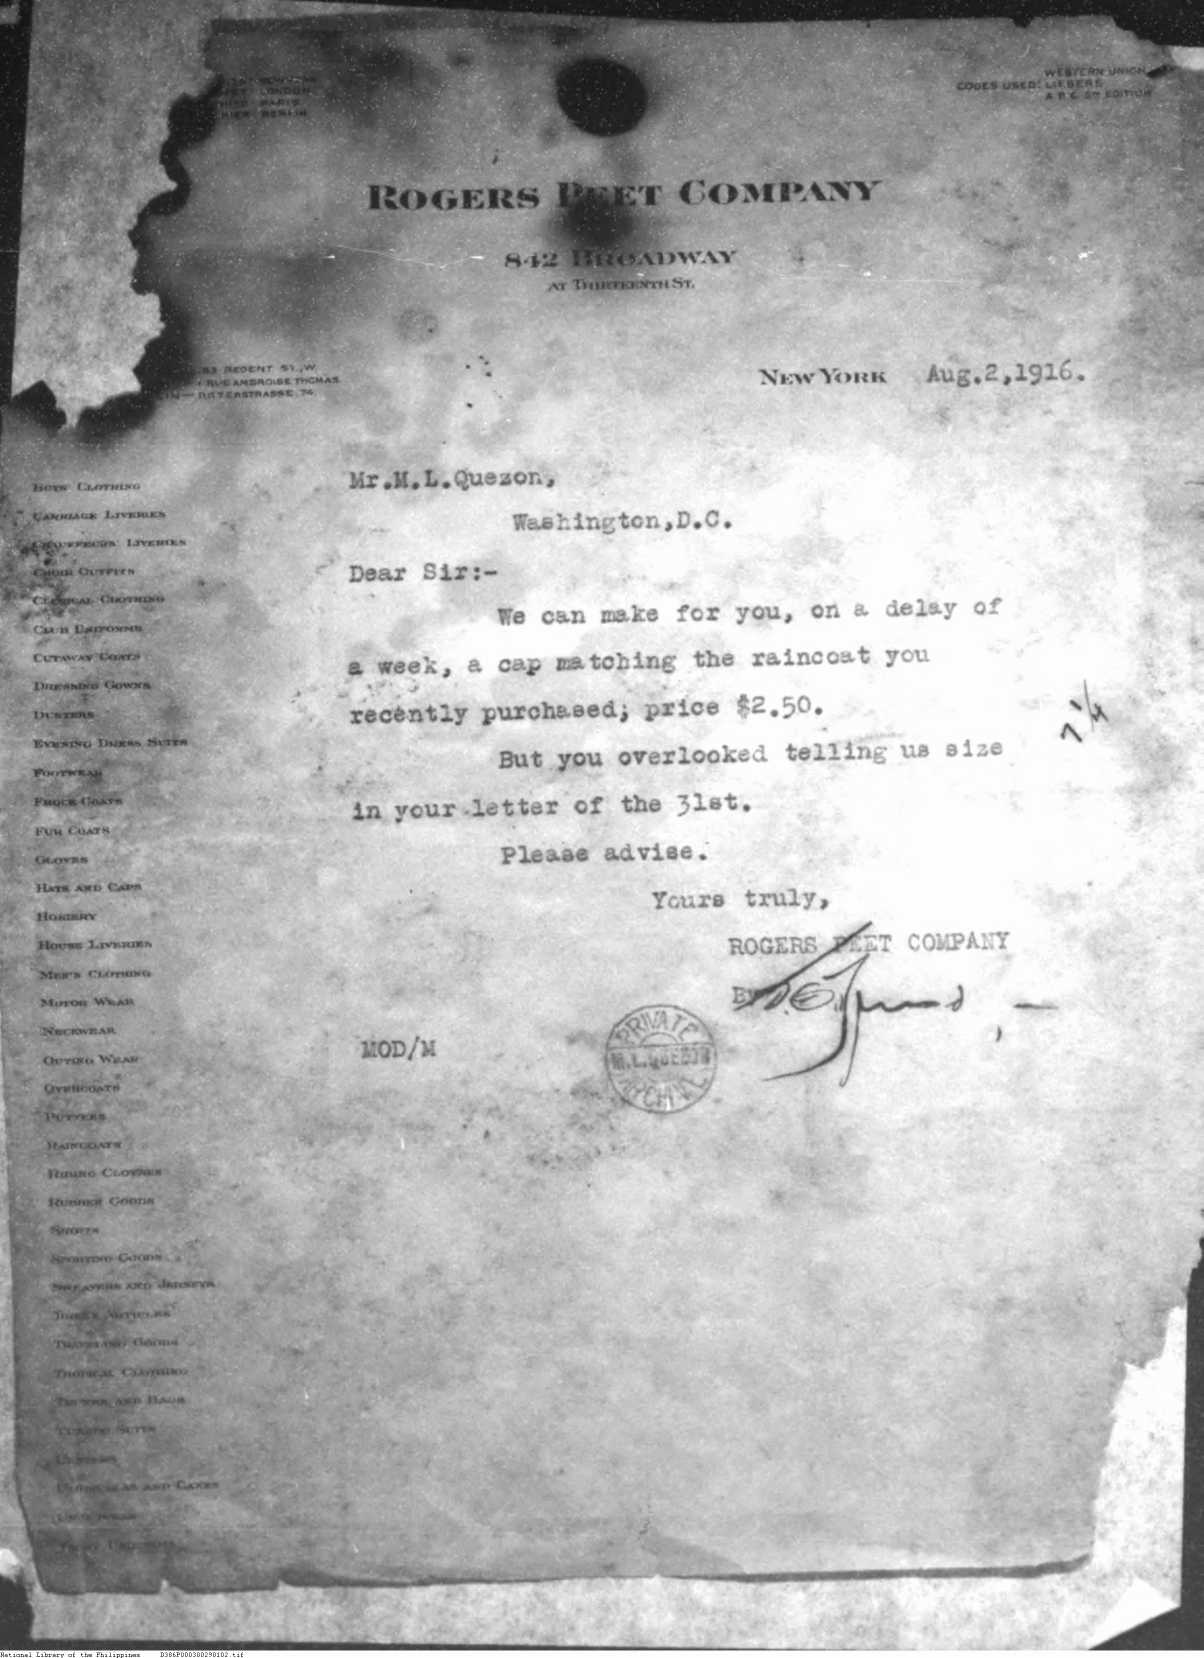 LONDON
PARIS
BERLIN
WESTERN UNION
CODES USED: LIEBERS
A B C 5TH EDITION
ROGERS PEET COMPANY
842 BROADWAY
AT THIRTEENTH ST.
REGENT ST., W.
RUE AMBROISE THOMAS
RITTERSTRASSE, 74
NEW YORK Aug.2,1916.
Mr.M.L.Quezon,
Washington,D.C.
Dear Sir:-
We can make for you, on a delay of
a week, a cap matching the raincoat you
recently purchased; price $2.50.
7 1/4
But you overlooked telling us size
in your letter of the 31st.
Please advise.
Yours truly,
ROGERS PEET COMPANY
BY
MOD/M
PRIVATE
M.L.QUEZON
ARCHIVE
BOYS' CLOTHING
CARRIAGE LIVERIES
CHAUFFEURS' LIVERIES
CHOIR OUTFITS
CLERICAL CLOTHING
CLUB UNIFORMS
CUTAWAY COATS
DRESSING GOWNS
DUSTERS
EVENING DRESS SUITS
FOOTWEAR
FROCK COATS
FUR COATS
GLOVES
HATS AND CAPS
HOSIERY
HOUSE LIVERIES
MEN'S CLOTHING
MOTOR WEAR
NECKWEAR
OUTING WEAR
OVERCOATS
PUTTEES
RAINCOATS
RIDING CLOTHES
RUBBER GOODS
SHIRTS
SPORTING GOODS
SWEATERS AND JERSEYS
TOILET ARTICLES
TRAVELING GOODS
TROPICAL CLOTHING
TRUNKS AND BAGS
TUXEDO SUITS
ULSTERS
UMBRELLAS AND CANES
UNDERWEAR
National Library of the Philippines D386P000300290102.tif